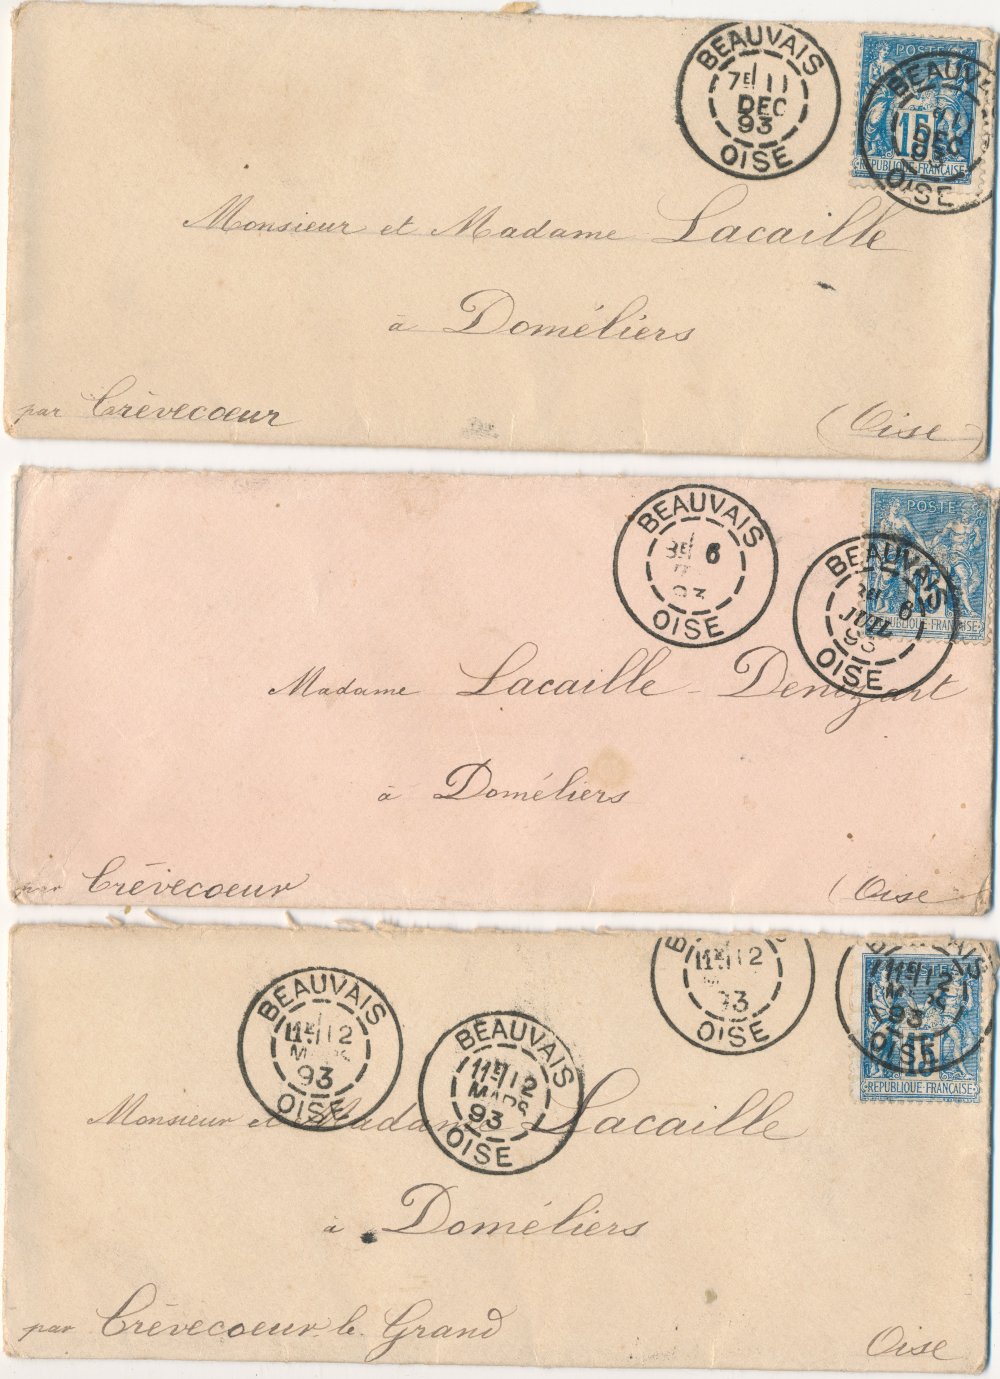 BEAUVAIS
7E 11
DEC
93
OISE
POSTES
15
REPUBLIQUE FRANÇAISE
BEAUV
DEC
93
OISE
Monsieur et Madame Lacaille
à Doméliers
par Crèvecoeur (Oise)
BEAUVAIS
3E 6
93
OISE
POSTES
15
PUBLIQUE FRANÇAISE
BEAUVAIS
6
JUIL
93
OISE
Madame Lacaille - Denizart
à Doméliers
par Crèvecoeur (Oise
BEAUVAIS
11E 12
MARS
93
OISE
BEAUVAIS
11E 12
MARS
93
OISE
B
11E 12
93
OISE
AIS
11E 12
93
OISE
15
REPUBLIQUE FRANÇAISE
Monsieur et Madame Lacaille
à Doméliers
par Crèvecoeur-le-Grand Oise